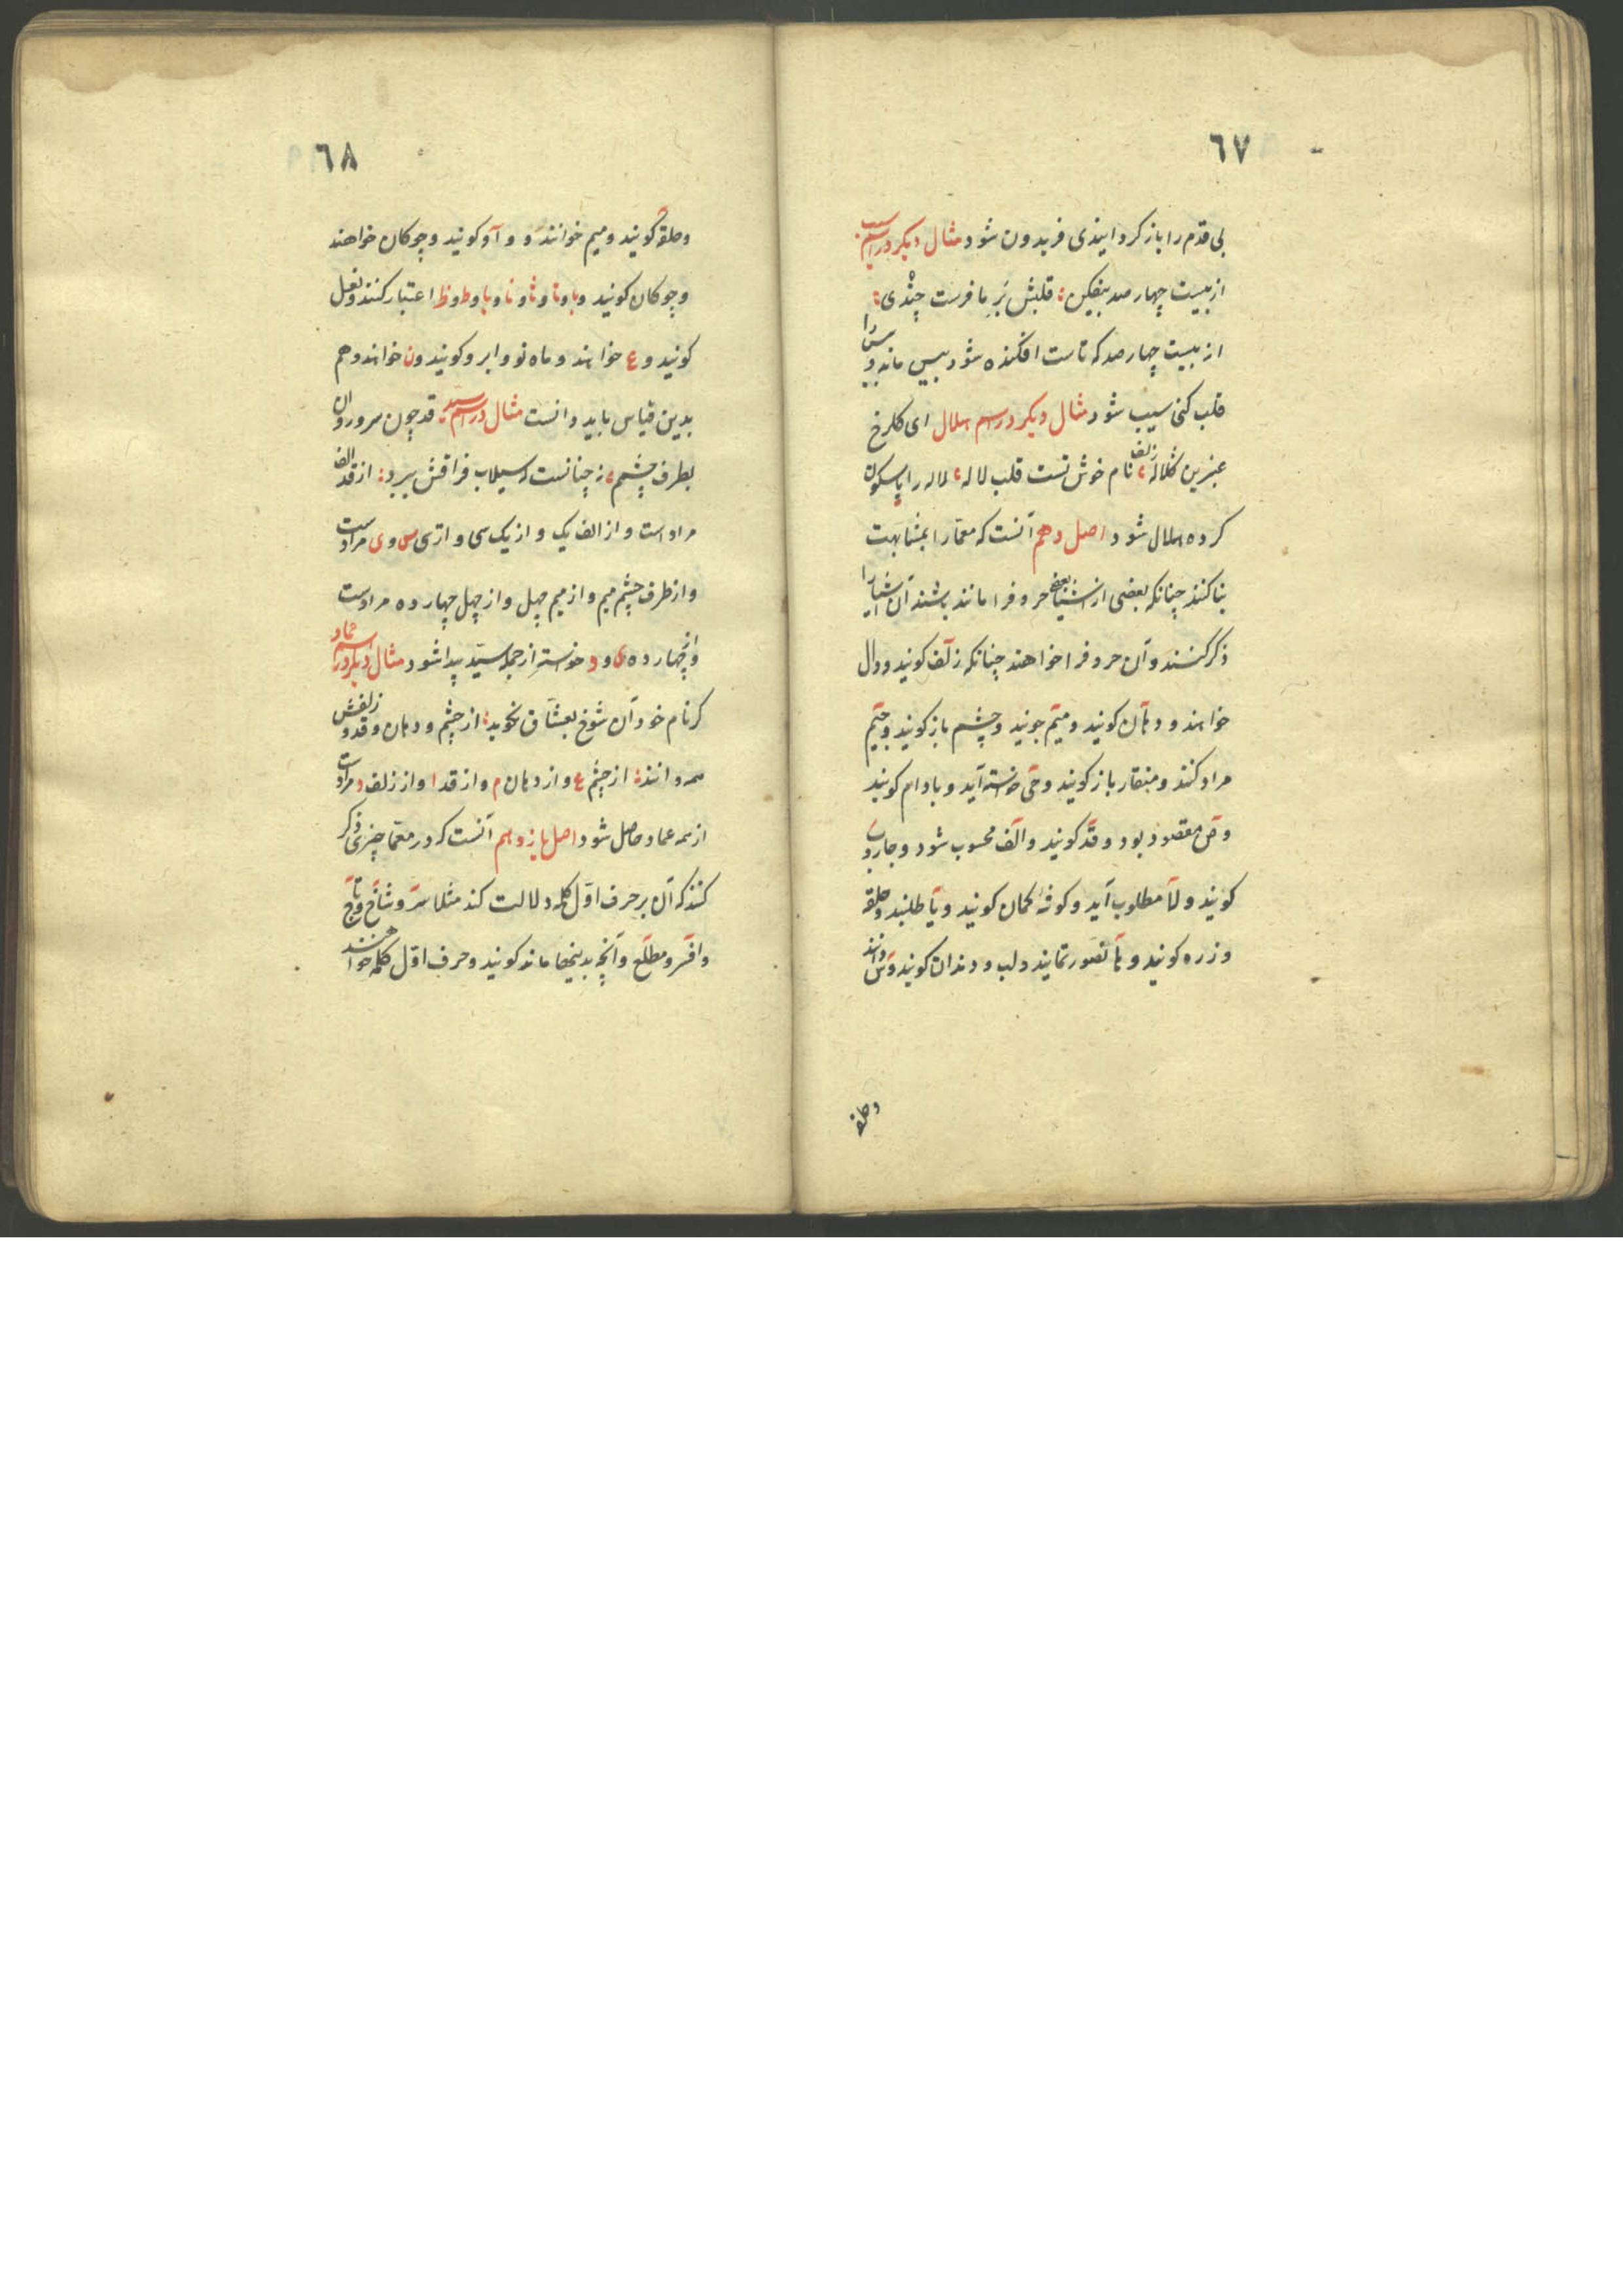 ٦٧
بی قدم را باز کرد ایذی فریدون شود مثال دیکر در اسم سیب
از بیست چهار صد بیفکن قلبش بر ما فرست چندی
از بیست چهار صد که تاست افکنده شود بیس ماند و بیس را
قلب کنی سیب شود مثال دیکر در اسم هلال ای کلرخ
عنبرین کلاله زلف نام خوش تست قلب لاله لاله را
کرده هلال شود اصل دهم آنست که معما را بمشابهت
بنا کنند چنانکه بعضی از اشیا بعضی حروف را مانند باشند آن اشیا را
ذکر کنند و آن حروف را خواهند چنانکه زلف کویند و دال
خواهند و دهان کویند و میم جویند و چشم باز کویند و جیم
مراد کنند و منقار باز کویند و خواسته آید و بادام کویند
و ص مقصود بود و قد کویند و الف محسوب شود و جاروب
کویند و لا مطلوب آید و کوفه کمان کویند و یا طلبند و حلقه
و زره کویند و ها تصور نمایند و لب و دندان کویند و س دانند
و حلقه
٦٨
و حلقه کویند و میم خوانند و واو کویند و چوکان خواهند
و چوکان کویند و با و تا و ثا و نا و یا و ط و ظ اعتبار کنند و نعل
کویند و ع خوانند و ماه نو و ابرو کویند و ن خوانند و هم
بدین قیاس باید دانست مثال در اسم سید قد چون سرو روان
بطرف چشم ز چنانست که سیلاب فراقش ببرد از قد الف
مرادست و از الف یک و از یک سی و از سی س و ی مرادست
و از طرف چشم میم و از میم چهل و از چهل چهار ده مرادست
و از چهار ده ی و د خواسته از جمله سید پیدا شود مثال دیکر در اسم عماد
کر نام خود آن شوخ بعشاق نکوید از چشم و دهان و قد و زلفش
همه دانند از چشم ع و از دهان م و از قد ا و از زلف د مرادست
از همه عماد حاصل شود اصل یازدهم آنست که در معما چیزی ذکر
کنند که آن بر حرف اول کلمه دلالت کند مثلا سر و شاخ و تاج
و افسر و مطلع و آنچه بدینها ماند کویند و حرف اول کلمه خواهند